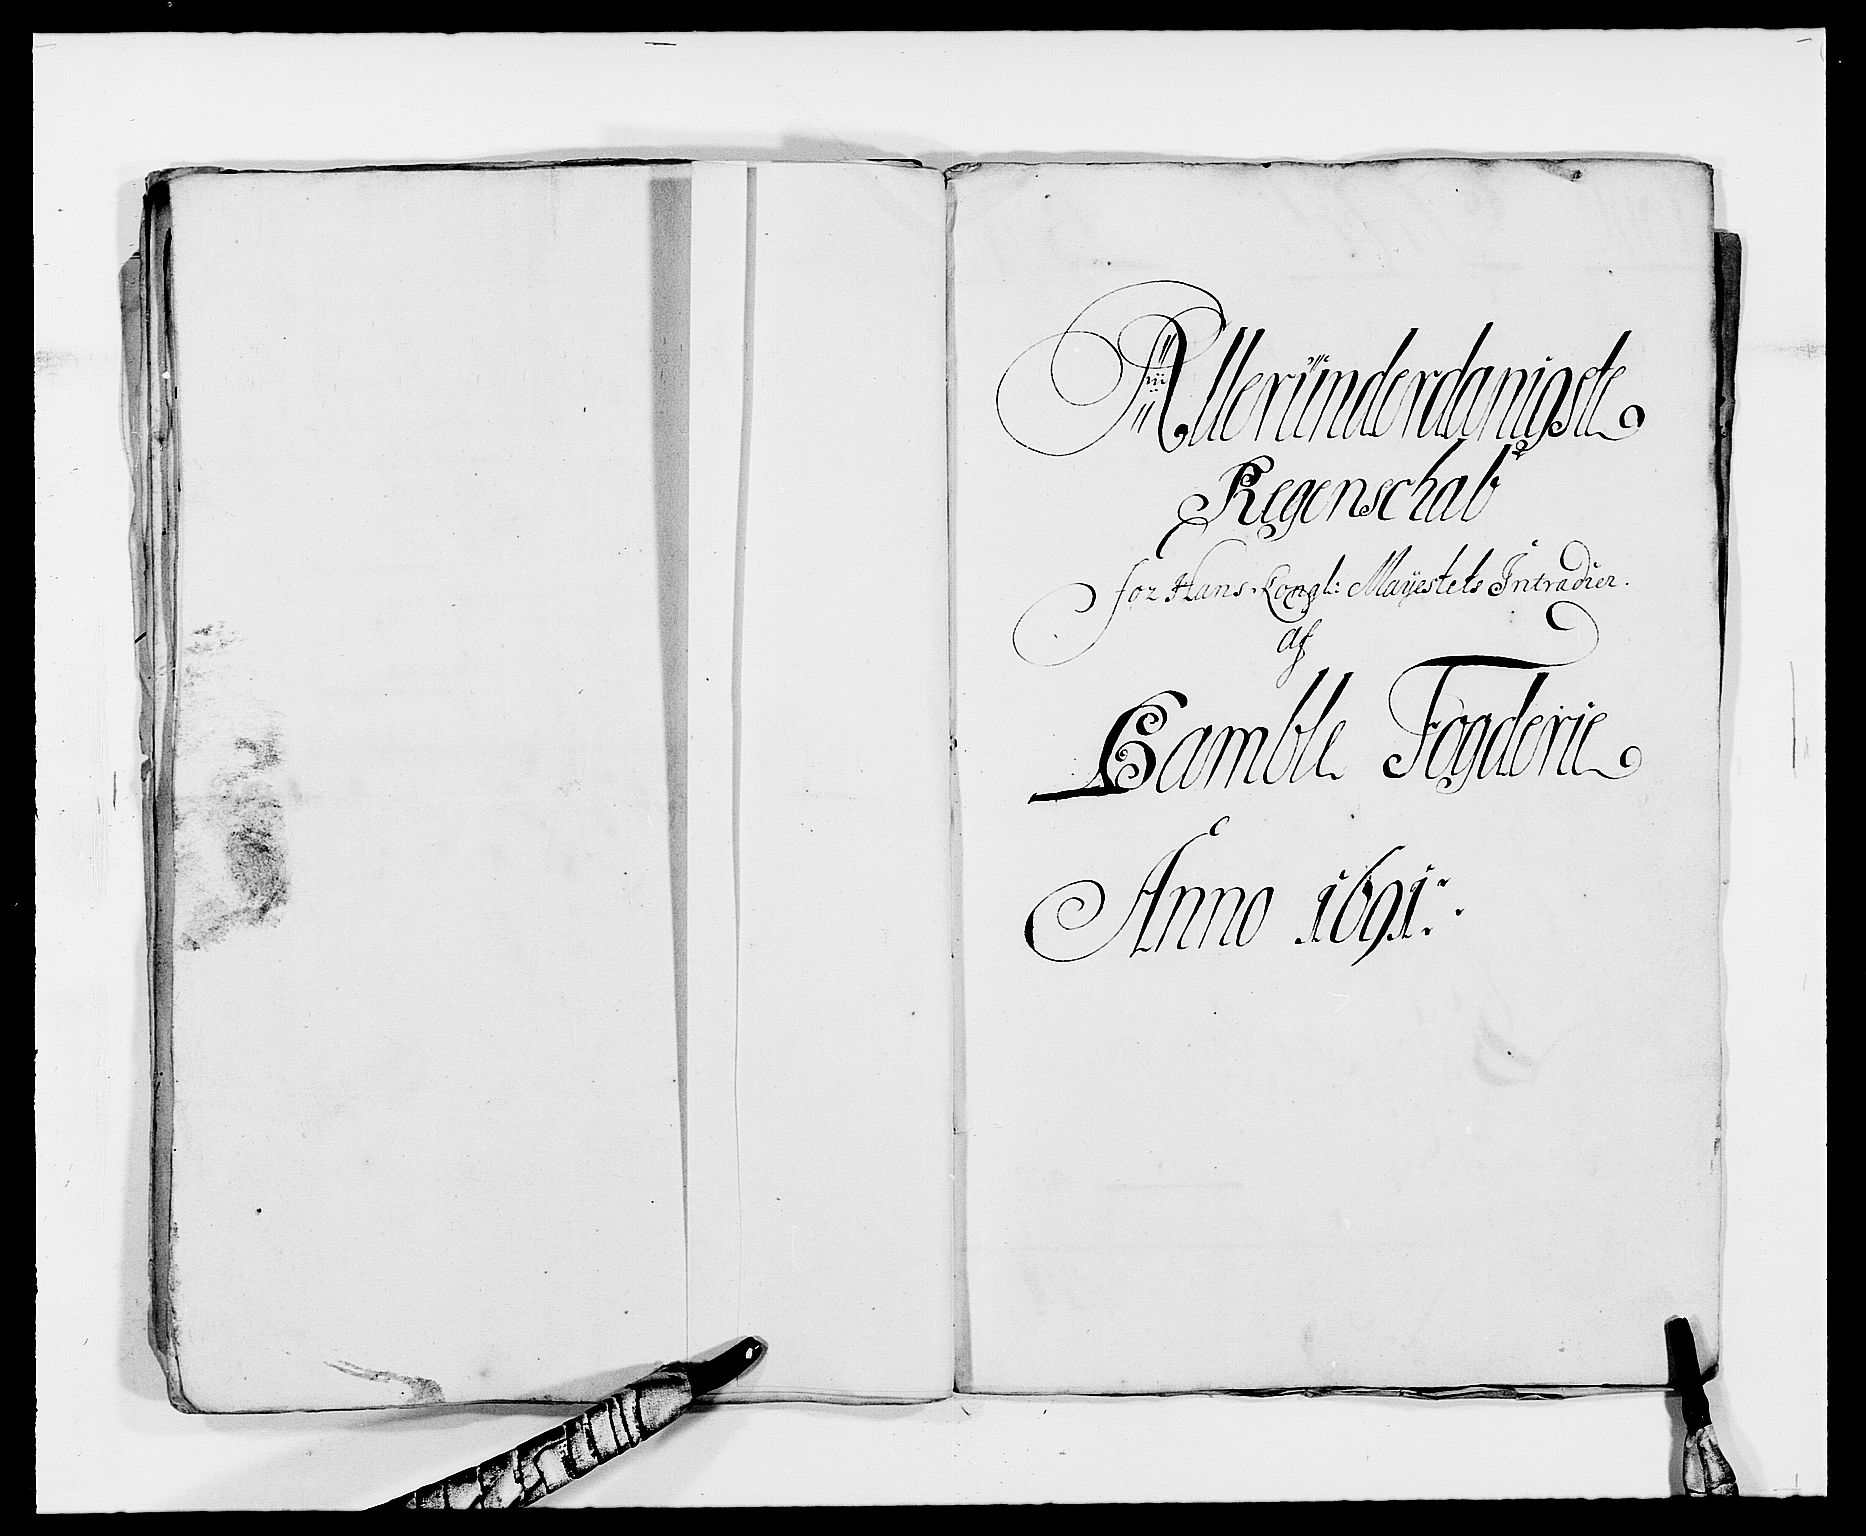 Alleründerdanigste
Regenschab
for Hans Kongl: Mayestets Intradier.
af
Bamble Fogderie
Anno 1691: